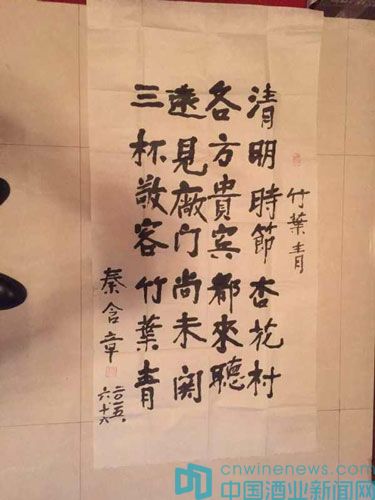 竹葉青
清明時節杏花村
各方貴宾都來聽
遠見廠门尚未関
三杯敬客竹葉青
秦含章
二〇一五、
六、十六
cnwinenews.com
中国酒业新闻网